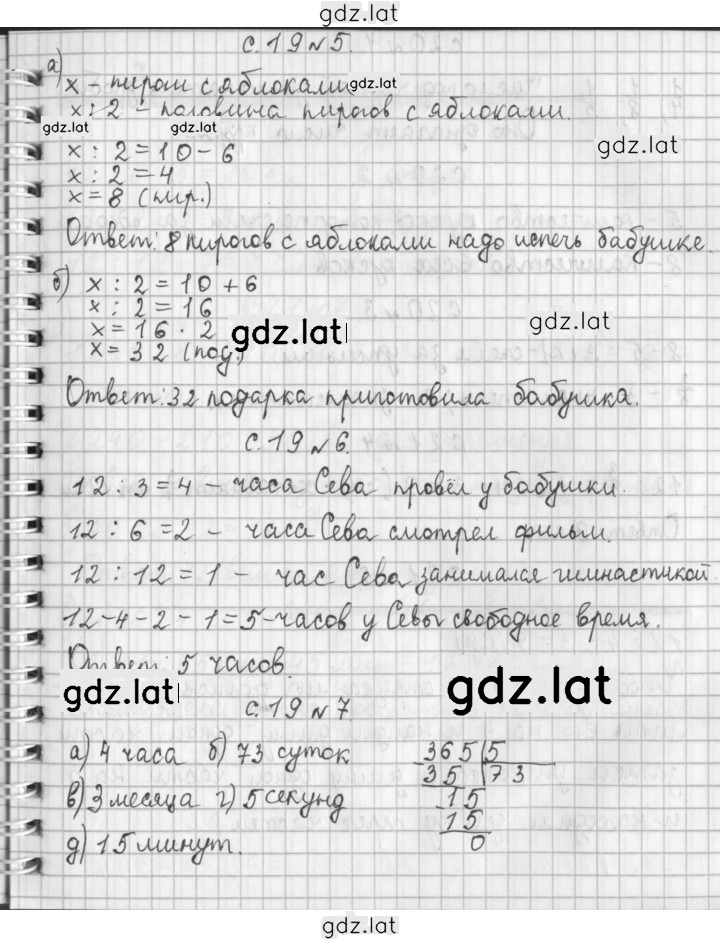 gdz.lat
с. 19 № 5.
а) x - пироги с яблоками gdz.lat
x : 2 - половина пирогов с яблоками.
gdz.lat gdz.lat gdz.lat
x : 2 = 10 - 6
x : 2 = 4
x = 8 (пир.)
Ответ: 8 пирогов с яблоками надо испечь бабушке.
б) x : 2 = 10 + 6
x : 2 = 16
x = 16 · 2 gdz.lat gdz.lat
x = 32 (под.)
Ответ: 32 подарка приготовила бабушка.
с. 19 № 6.
12 : 3 = 4 - часа Сева провёл у бабушки.
12 : 6 = 2 - часа Сева смотрел фильм.
12 : 12 = 1 - час Сева занимался гимнастикой.
12 - 4 - 2 - 1 = 5 - часов у Севы свободное время.
Ответ: 5 часов.
gdz.lat gdz.lat
с. 19 № 7.
а) 4 часа б) 73 суток
в) 3 месяца г) 5 секунд
д) 15 минут.
365 5
35 73
15
15
0
gdz.lat